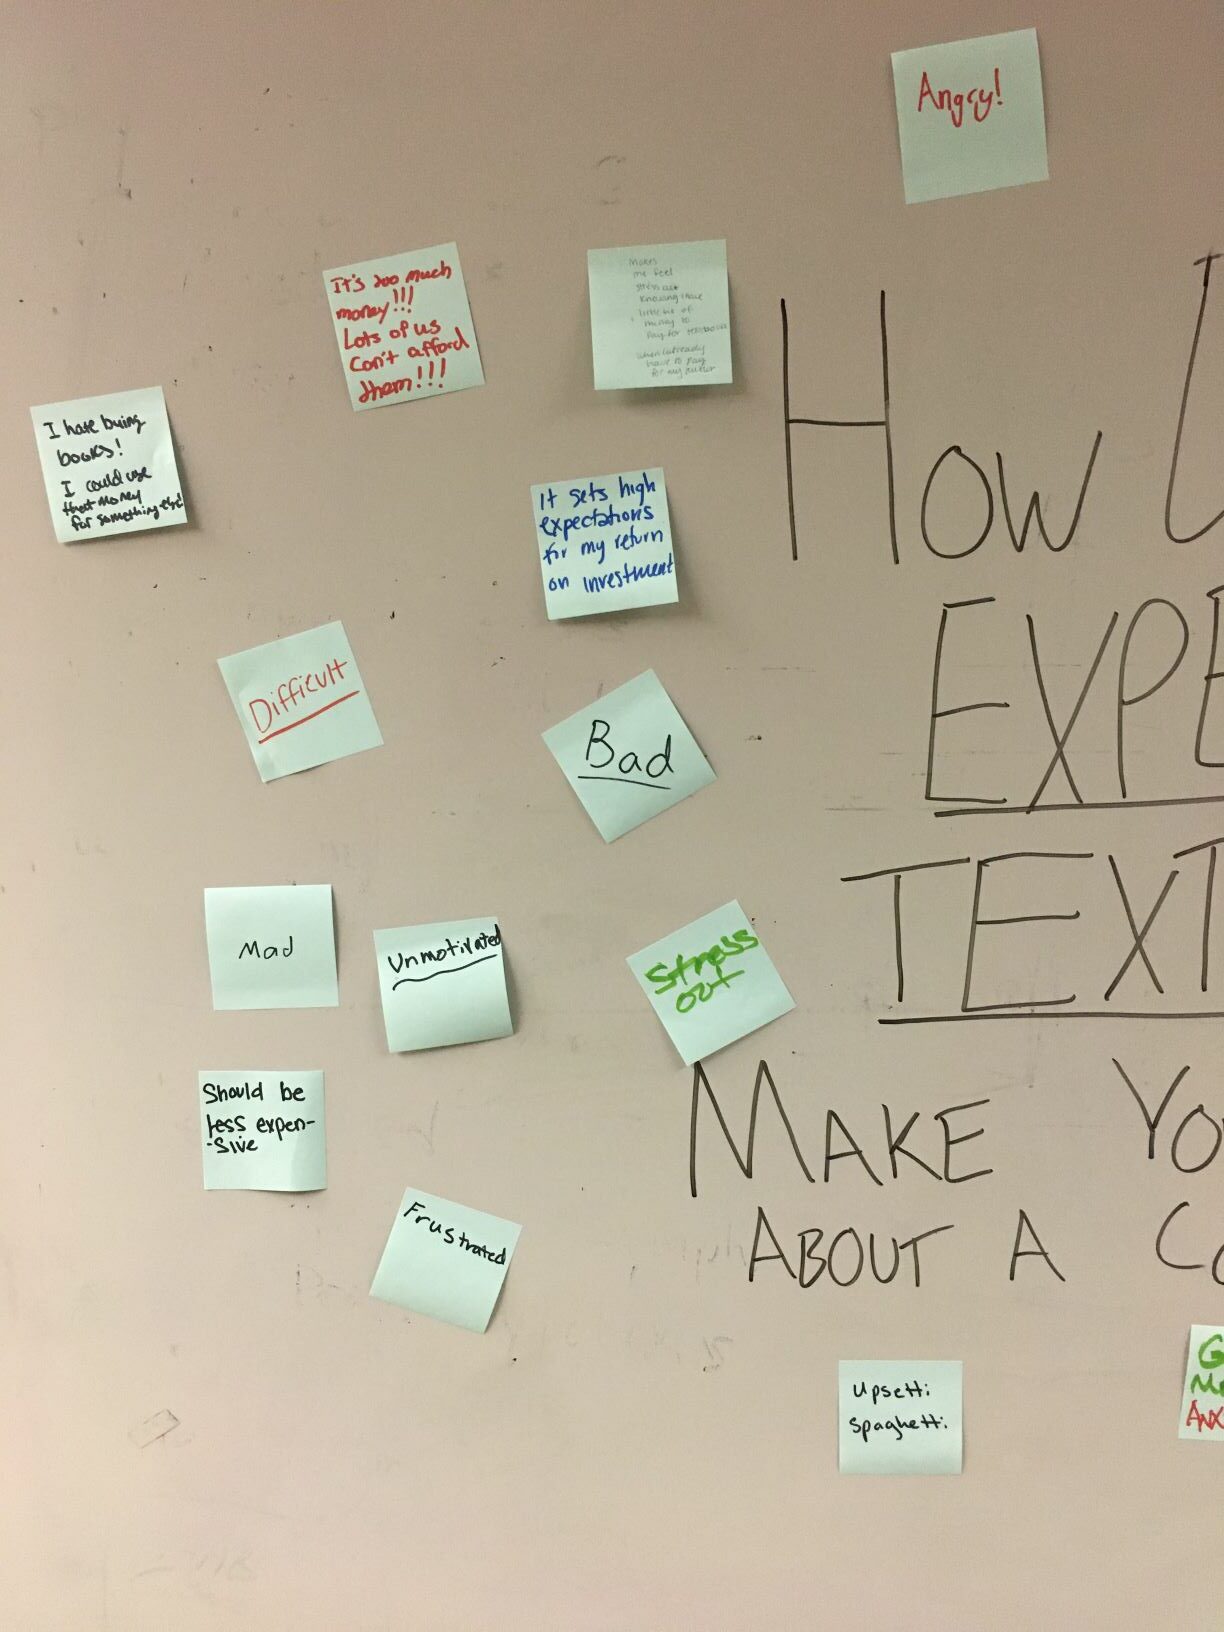 Angry!
It's too much
money!!!
Lots of us
Can't afford
them!!!
Makes
me feel
stress out
Knowing I have
little bit of
money to
Pay for textbooks
when I already
have to pay
for my
I hate buing
books!
I could use
that money
for something else!
It sets high
expectations
for my return
on investment
Difficult
Bad
Mad
Unmotivated
Stress
out
Should be
less expen-
-sive
Frustrated
How
EXPE
TEXT
MAKE YO
ABOUT A CO
Upsetti
Spaghetti
G
ANX